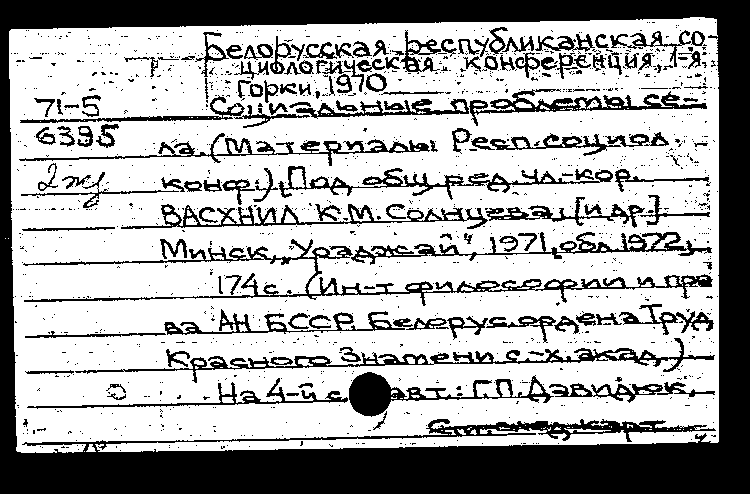 Белорусская республиканская со-
циологическая конференция, 1-я.
Горки, 1970
71-5 Социальные проблемы се-
6395 ла. (Материалы Респ. социол.
2 жд конф.). Под общ. ред. чл.-кор.
ВАСХНИЛ К.М. Солнцева, [и др.].
Минск, „Ураджай“, 1971, обл. 1972.
174 с. (Ин-т философии и пра
ва АН БССР. Белорус. ордена Труд.
Красного Знамени с.-х. акад.)
На 4-й с. авт.: Г.П. Давидюк,
См. след. карт